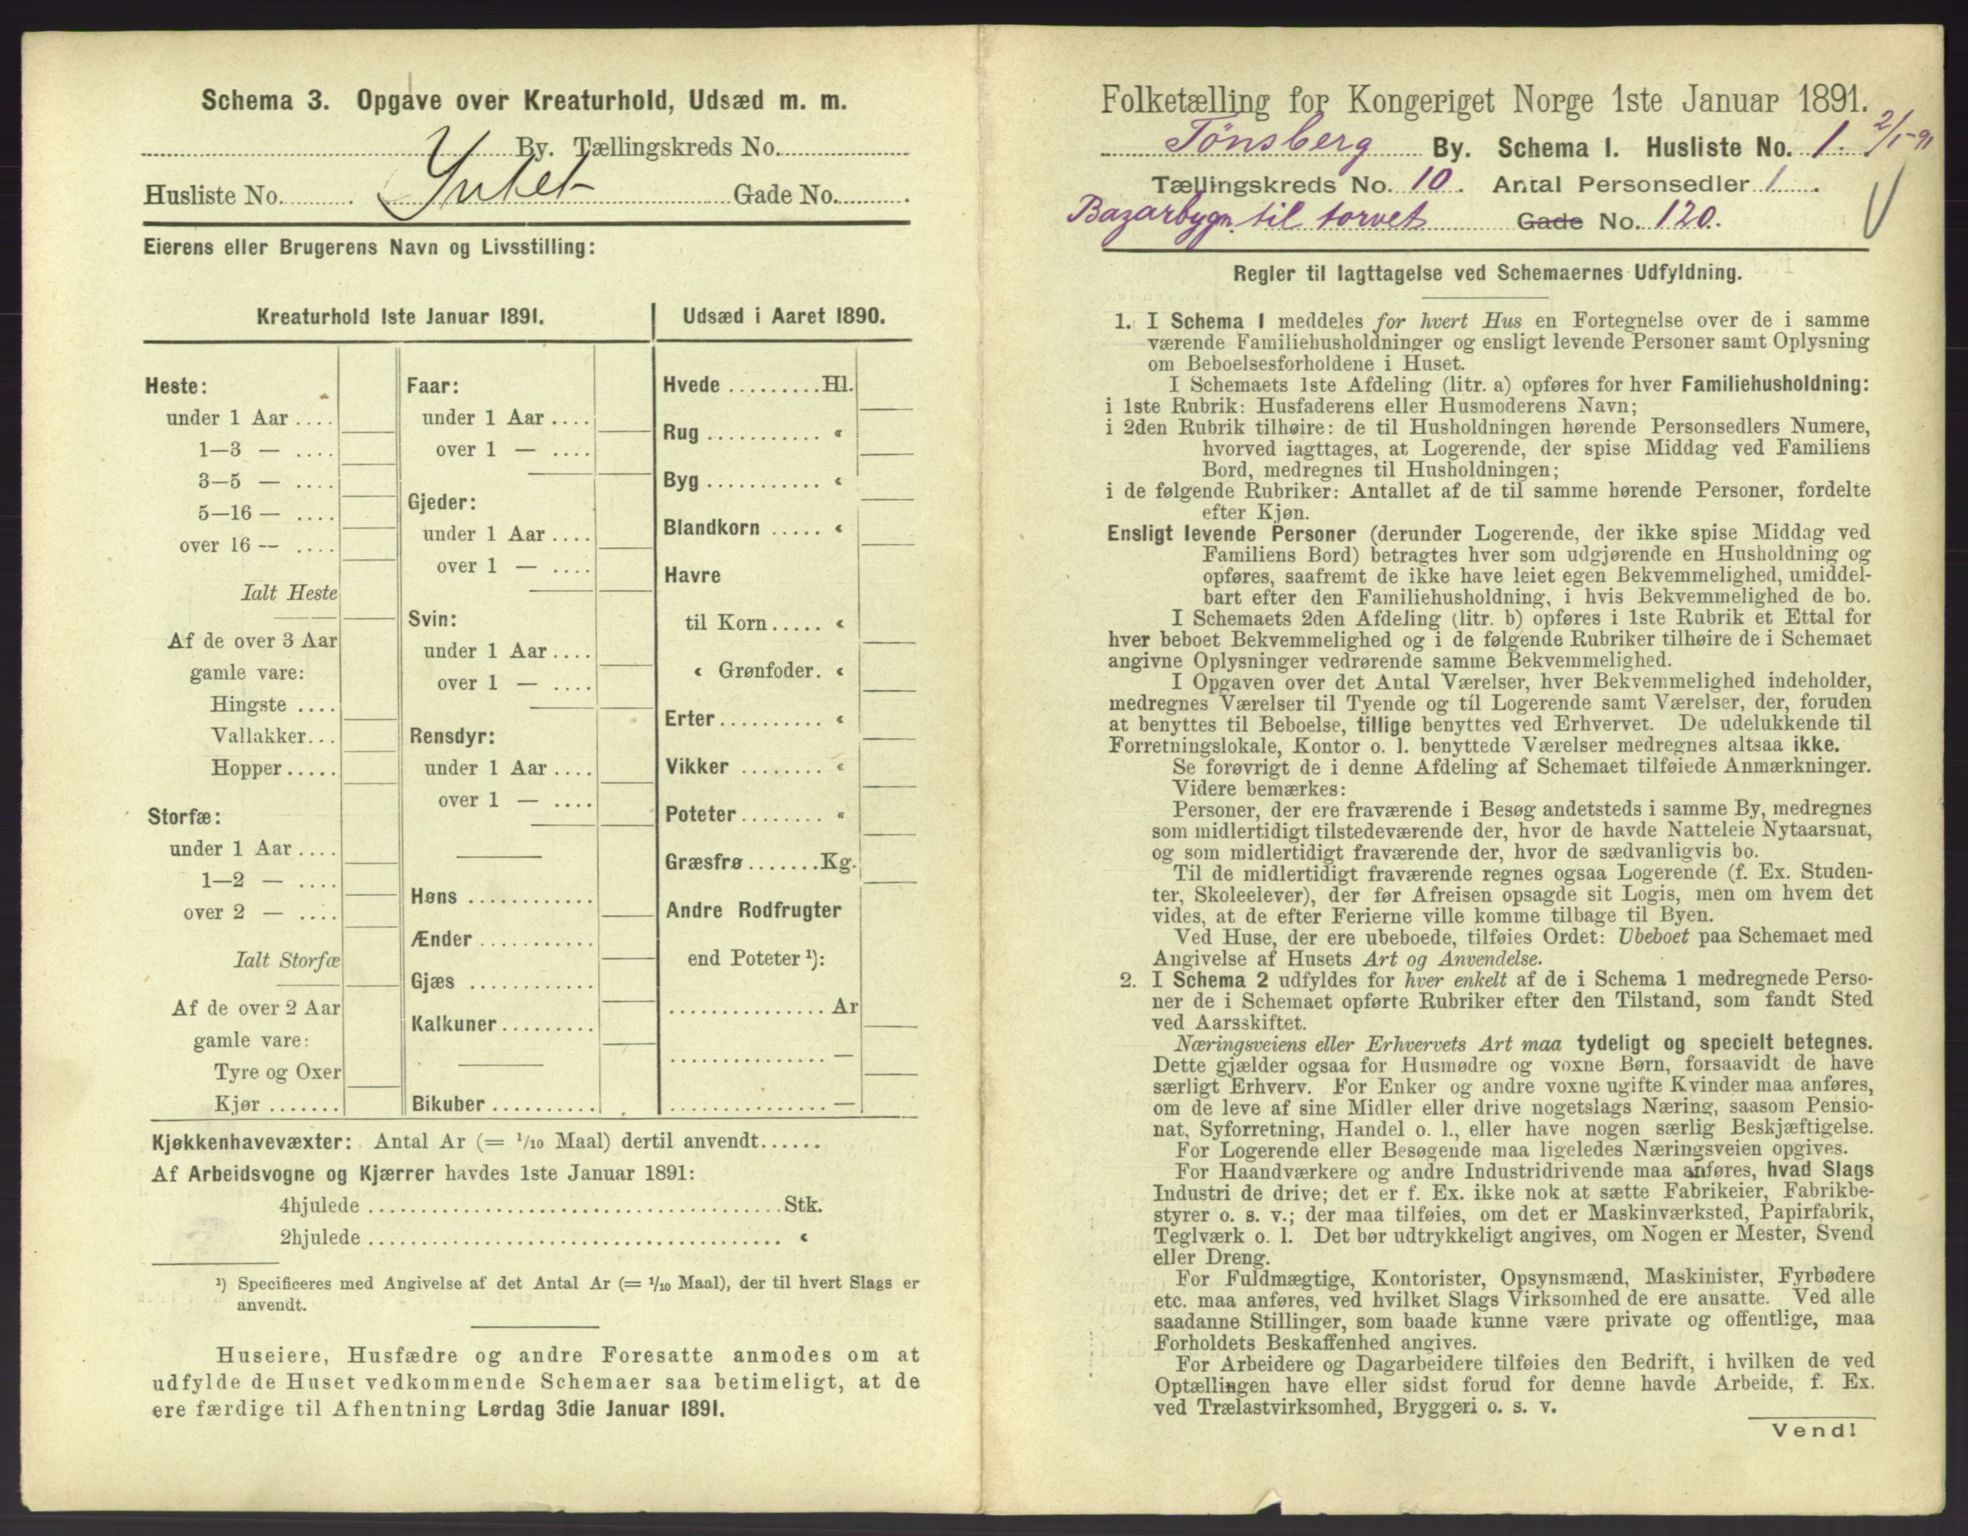 Schema 3. Opgave over Kreaturhold, Udsæd m. m.
By. Tællingskreds No.
Husliste No. Intet Gade No.
Eierens eller Brugerens Navn og Livsstilling:
Kreaturhold 1ste Januar 1891.
Heste:
under 1 Aar ....
1—3 — ....
3—5 — ....
5—16 — ....
over 16 — ....
Ialt Heste
Af de over 3 Aar
gamle vare:
Hingste ....
Vallakker...
Hopper.....
Storfæ:
under 1 Aar ....
1—2 — ....
over 2 — ....
Ialt Storfæ
Af de over 2 Aar
gamle vare:
Tyre og Oxer
Kjør .......
Faar:
under 1 Aar ....
over 1 — ....
Gjeder:
under 1 Aar ....
over 1 — ....
Svin:
under 1 Aar ....
over 1 — ....
Rensdyr:
under 1 Aar ....
over 1 — ....
Høns ............
Ænder ...........
Gjæs ............
Kalkuner.........
Bikuber ..........
Udsæd i Aaret 1890.
Hvede .........Hl.
Rug ........... «
Byg ........... «
Blandkorn ..... «
Havre
til Korn ..... «
« Grønfoder. «
Erter.......... «
Vikker ........ «
Poteter........ «
Græsfrø.......Kg.
Andre Rodfrugter
end Poteter ¹):
............... Ar
............... —
............... —
Kjøkkenhavevæxter: Antal Ar (= 1/10 Maal) dertil anvendt......
Af Arbeidsvogne og Kjærrer havdes 1ste Januar 1891:
4hjulede ........................................Stk.
2hjulede ........................................ «
¹) Specificeres med Angivelse af det Antal Ar (= 1/10 Maal), der til hvert Slags er
anvendt.
Huseiere, Husfædre og andre Foresatte anmodes om at
udfylde de Huset vedkommende Schemaer saa betimeligt, at de
ere færdige til Afhentning Lørdag 3die Januar 1891.
Folketælling for Kongeriget Norge 1ste Januar 1891.
Tønsberg By. Schema 1. Husliste No. 1. 2/1-91
Tællingskreds No. 10. Antal Personsedler 1.
Bazarbygn. til torvet Gade No. 120.
Regler til Iagttagelse ved Schemaernes Udfyldning.
1. I Schema 1 meddeles for hvert Hus en Fortegnelse over de i samme
værende Familiehusholdninger og ensligt levende Personer samt Oplysning
om Beboelsesforholdene i Huset.
I Schemaets 1ste Afdeling (litr. a) opføres for hver Familiehusholdning:
i 1ste Rubrik: Husfaderens eller Husmoderens Navn;
i 2den Rubrik tilhøire: de til Husholdningen hørende Personsedlers Numere,
hvorved iagttages, at Logerende, der spise Middag ved Familiens
Bord, medregnes til Husholdningen;
i de følgende Rubriker: Antallet af de til samme hørende Personer, fordelte
efter Kjøn.
Ensligt levende Personer (derunder Logerende, der ikke spise Middag ved
Familiens Bord) betragtes hver som udgjørende en Husholdning og
opføres, saafremt de ikke have leiet egen Bekvemmelighed, umiddel-
bart efter den Familiehusholdning, i hvis Bekvemmelighed de bo.
I Schemaets 2den Afdeling (litr. b) opføres i 1ste Rubrik et Ettal for
hver beboet Bekvemmelighed og i de følgende Rubriker tilhøire de i Schemaet
angivne Oplysninger vedrørende samme Bekvemmelighed.
I Opgaven over det Antal Værelser, hver Bekvemmelighed indeholder,
medregnes Værelser til Tyende og til Logerende samt Værelser, der, foruden
at benyttes til Beboelse, tillige benyttes ved Erhvervet. De udelukkende til
Forretningslokale, Kontor o. l. benyttede Værelser medregnes altsaa ikke.
Se forøvrigt de i denne Afdeling af Schemaet tilføiede Anmærkninger.
Videre bemærkes:
Personer, der ere fraværende i Besøg andetsteds i samme By, medregnes
som midlertidigt tilstedeværende der, hvor de havde Natteleie Nytaarsnat,
og som midlertidigt fraværende der, hvor de sædvanligvis bo.
Til de midlertidigt fraværende regnes ogsaa Logerende (f. Ex. Studen-
ter, Skoleelever), der før Afreisen opsagde sit Logis, men om hvem det
vides, at de efter Ferierne ville komme tilbage til Byen.
Ved Huse, der ere ubeboede, tilføies Ordet: Ubeboet paa Schemaet med
Angivelse af Husets Art og Anvendelse.
2. I Schema 2 udfyldes for hver enkelt af de i Schema 1 medregnede Perso-
ner de i Schemaet opførte Rubriker efter den Tilstand, som fandt Sted
ved Aarsskiftet.
Næringsveiens eller Erhvervets Art maa tydeligt og specielt betegnes.
Dette gjælder ogsaa for Husmødre og voxne Børn, forsaavidt de have
særligt Erhverv. For Enker og andre voxne ugifte Kvinder maa anføres,
om de leve af sine Midler eller drive nogetslags Næring, saasom Pensio-
nat, Syforretning, Handel o. l., eller have nogen særlig Beskjæftigelse.
For Logerende eller Besøgende maa ligeledes Næringsveien opgives.
For Haandværkere og andre Industridrivende maa anføres, hvad Slags
Industri de drive; det er f. Ex. ikke nok at sætte Fabrikeier, Fabrikbe-
styrer o. s. v.; der maa tilføies, om det er Maskinværksted, Papirfabrik,
Teglværk o. l. Det bør udtrykkeligt angives, om Nogen er Mester, Svend
eller Dreng.
For Fuldmægtige, Kontorister, Opsynsmænd, Maskinister, Fyrbødere
etc. maa anføres, ved hvilket Slags Virksomhed de ere ansatte. Ved alle
saadanne Stillinger, som baade kunne være private og offentlige, maa
Forholdets Beskaffenhed angives.
For Arbeidere og Dagarbeidere tilføies den Bedrift, i hvilken de ved
Optællingen have eller sidst forud for denne havde Arbeide, f. Ex.
ved Trælastvirksomhed, Bryggeri o. s. v.
Vend!